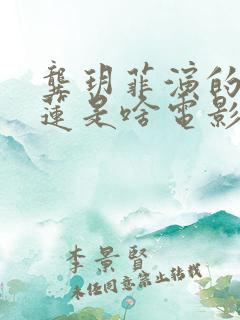 龚玥菲演的
莲是啥电影
李景賢
未经同意禁止转载